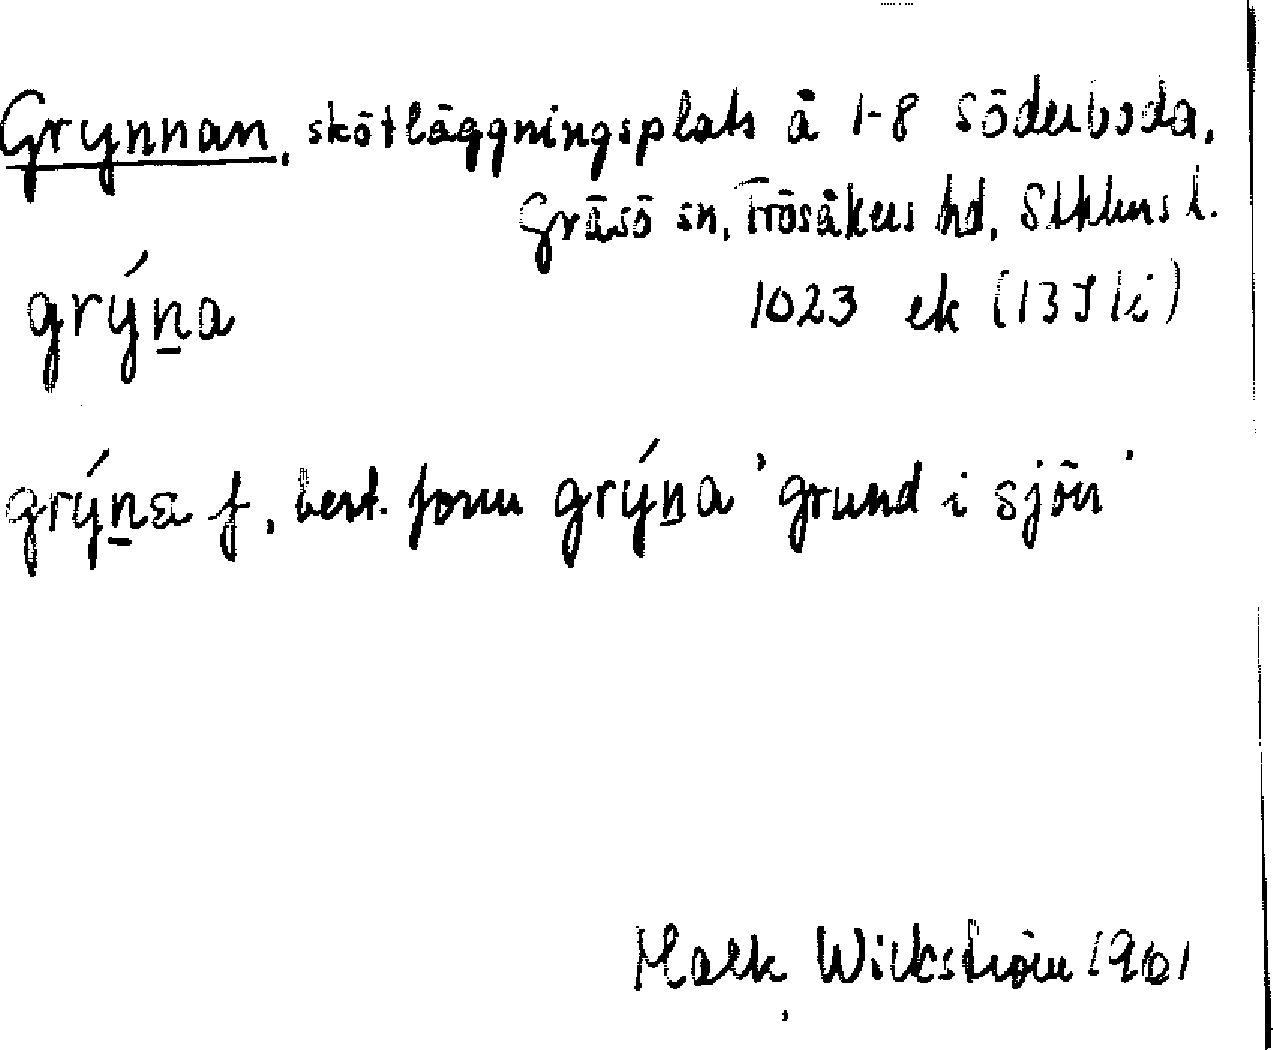 Grynnan, skötläggningsplats å 1-8 Söderboda,
Gräsö sn, Frösåkers hd, Sthlms l.
grýn̲a
1023 ek (13J1i)
grýn̲a f, best. form grýn̲a 'grund i sjön'
Wickström 1961